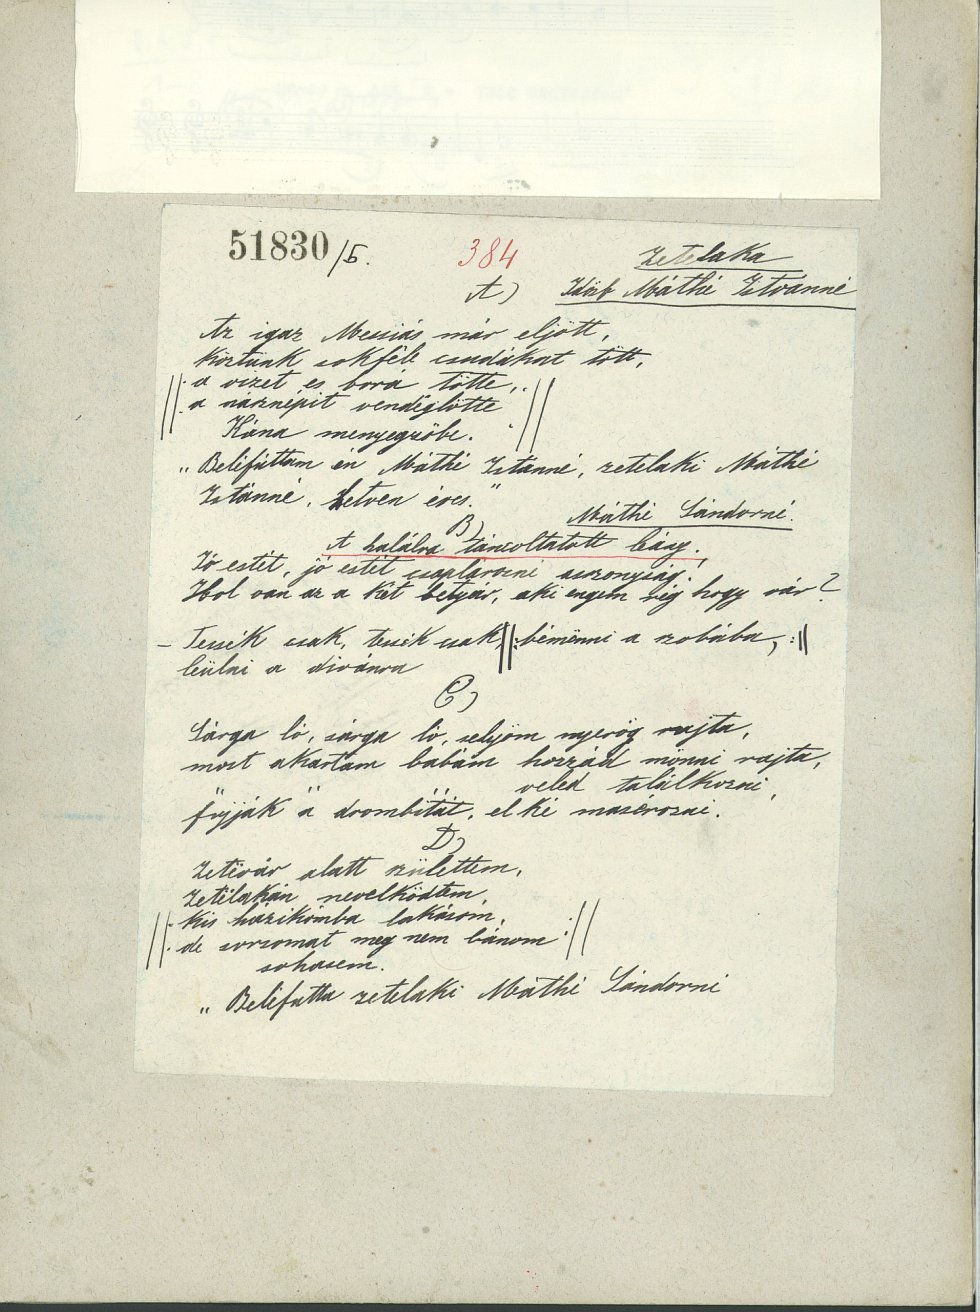 51830/5.
384
Zetelaka
A)
Idősb Máthé Istvánné
Az igaz Messiás már eljött,
köztünk sokféle csudákat tött,
||: a vizet es borá tötte,
a násznépit vendéglötte
Kána menyegzőbe. :||
„Beléfúttam én Máthé Istánné, zetelaki Máthé
Istánné. Hetven éves."
Máthé Sándorné.
B)
A halálra táncoltatott lány.
Jó estét, jó estét csaplárosné asszonyság.
Hol van az a két betyár, aki engem rég hogy vár?
– Tessék csak, tessék csak ||: béménni a szobába, :||
leülni a divánra
C)
Sárga ló, sárga ló, seljöm nyerög rajta,
most akartam babám hozzád mönni rajta,
veled találkozni,
fújják a drombitát, el ké masérozni.
D)
Zetevár alatt születtem,
Zetelakán nevelködtem,
||: kis házikómba lakásom,
de sorsomat meg nem bánom :||
sohasem.
„Beléfútta zetelaki Máthé Sándorné